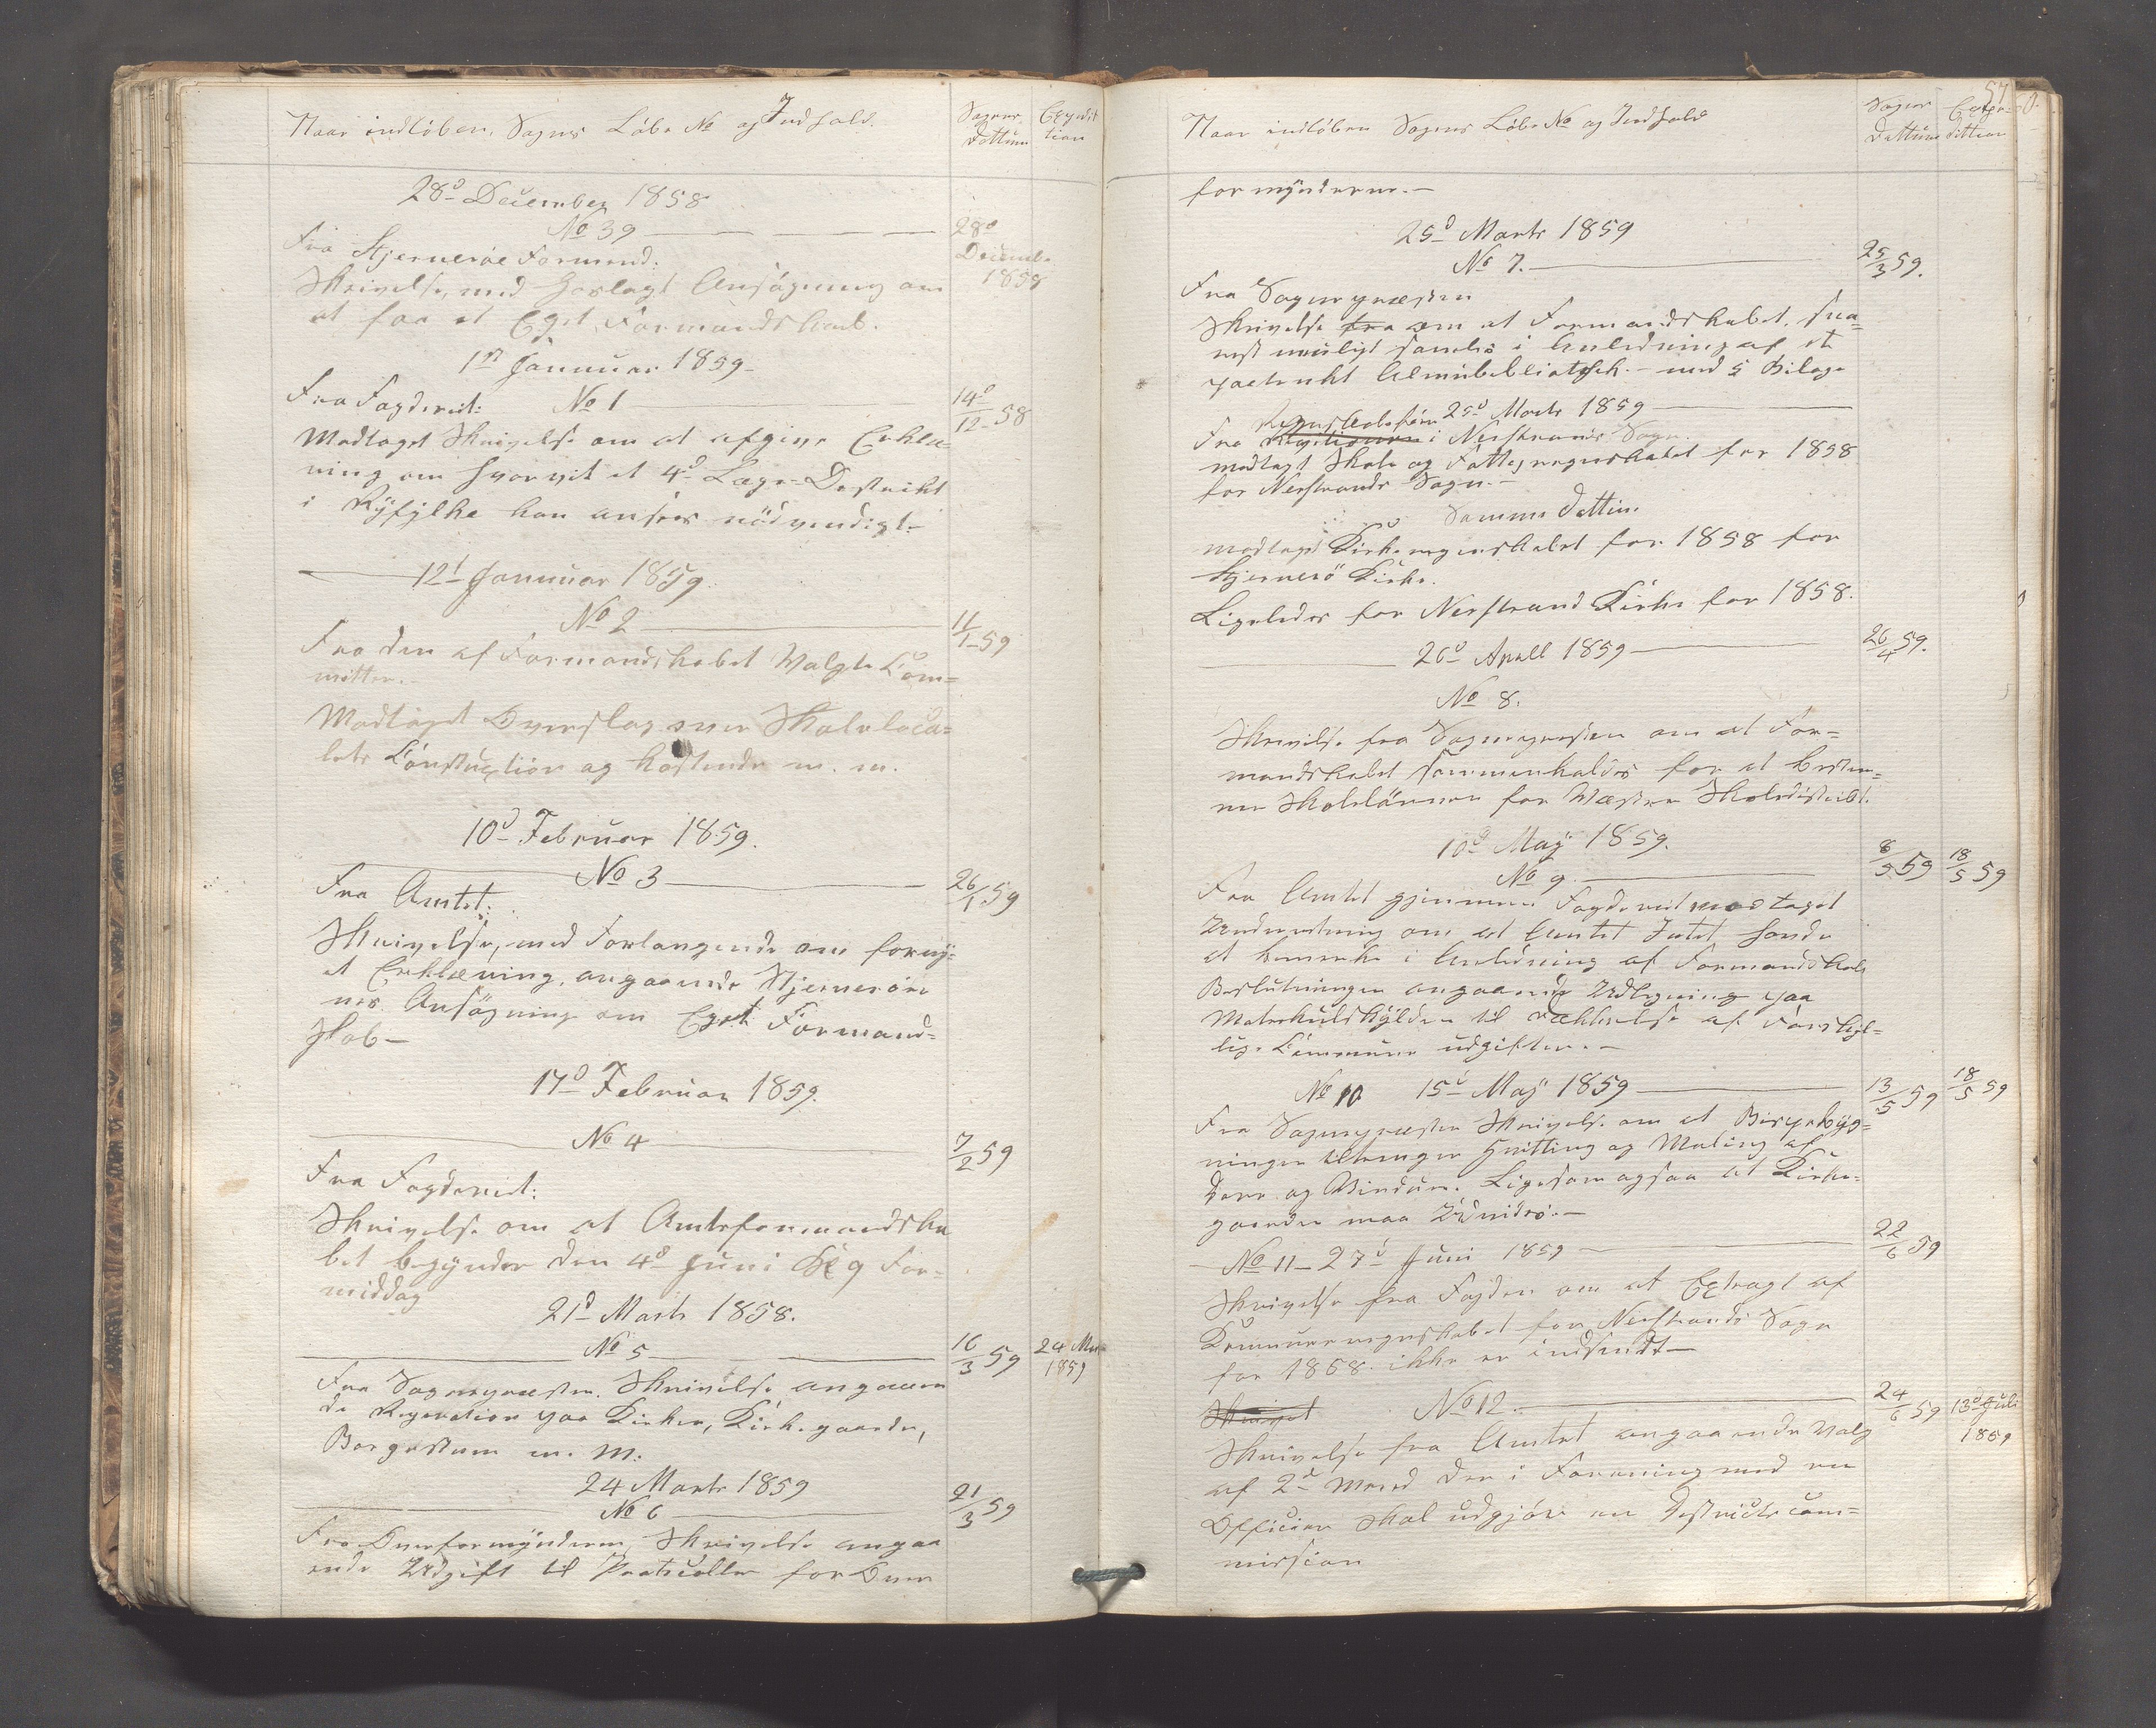 Naar indløben, Sagens Løbe No og Indhold.
Sagens Dattum
Expedittion
28d December 1858
No 39
28d Decemb. 1858
Fra Stjernerøe Formend:
Skrivelse, med Forlagt Ansøgning om
at faa et Eget Formandskab.
1st Januar 1859
Fra Fogderiet: No 1
14d/12 58
Modtaget Skrivelse om at afgive Erklæ=
ning om hvorvit et 4d Læge-Destrikt
i Ryfylke kan anses nødvendigt.
12t Januar 1859.
No 2
11/1 59
Fra den af Formandskabet Valgte Com=
mitter.
Modtaget Overslag over Skoleloca=
lets Construction og kostende m. m.
10d Februar 1859.
No 3
26/1 59
Fra Amtet:
Skrivelse, med Forlangende om forny=
et Erklæring, angaaende Stjernerøe
nes Ansøgning om Eget Formand=
skab
17d Februar 1859.
No 4
7/2 59
Fra Fogderiet:
Skrivelse om at Amtsformandska
bet begynder den 4d Juni Kl 9 For=
middag
21d Marts 1858.
No 5
16/3 59
24 Mar 1859
Fra Sognepresten. Skrivelse angaaen
de Reperation paa Kirker, Kirkegaarde,
Borgestuen m. M:
24 Marts 1859
No 6
21/3 59
Fra Overformynderen Skrivelse angaa
ende Udgift til Protocoller for Over
57
Naar indløben Sagens Løbe No og Indhold
Sagens Dattum
Expedittion
formynderne.
25d Marts 1859
No 7.
25/3 59.
Fra Sognepresten
Skrivelse fra om at Formandskabet, sna=
rest muligt samles i Anledning af et
paatænkt Almubibliothek. med 5 Bilage
25d Marts 1859
Fra i Nerstrands Sogn.
modtagt Skole og Fattigregnskabet for 1858
for Nerstrands Sogn.
Samme Dattum.
modtaget Kirkeregnskabet for 1858 for
Stjernerø Kirke.
Ligeledes for Nerstrand Kirke for 1858.
26d Aprill 1859
26/4 59.
No 8.
Skrivelse fra Sognepresten om at For=
mandskabet sammenkaldes for at bestem=
me Skolelønnen for Væstre Skoledistrikt.
10d May 1859.
No 9.
8/5 59
18/5 59
Fra Amtet gjennem Fogderiet modtaget
Underretning om at Amtet Intet havde
at bemerke i Anledning af Formandskab
Beslutningen angaaende Udligning paa
Matrikulskylden til Dækkelse af Forskjel=
lige Communeudgifter.
No 10 15d Maj 1859
13/5 59
18/5 59
Fra Sognepresten Skrivelse om at Bispebyg=
ningen tiltrenger Hvitting og Maling af
Døre og Vinduer. Ligesom ogsaa at Kirke=
gaarden maa Udvides.
No 11 27d Juni 1859
22/6 59
Skrivelse fra Fogden om at Extragt af
Kommuneregnskabet for Nerstrands Sogn
for 1858 ikke er indsendt
Skrivel No 12.
24/6 59
13d Juli 1859
Skrivelse fra Amtet angaaende Valg
af 2d Mænd der i Forening med en
Officier skal udgjøre en Destricts com=
mission